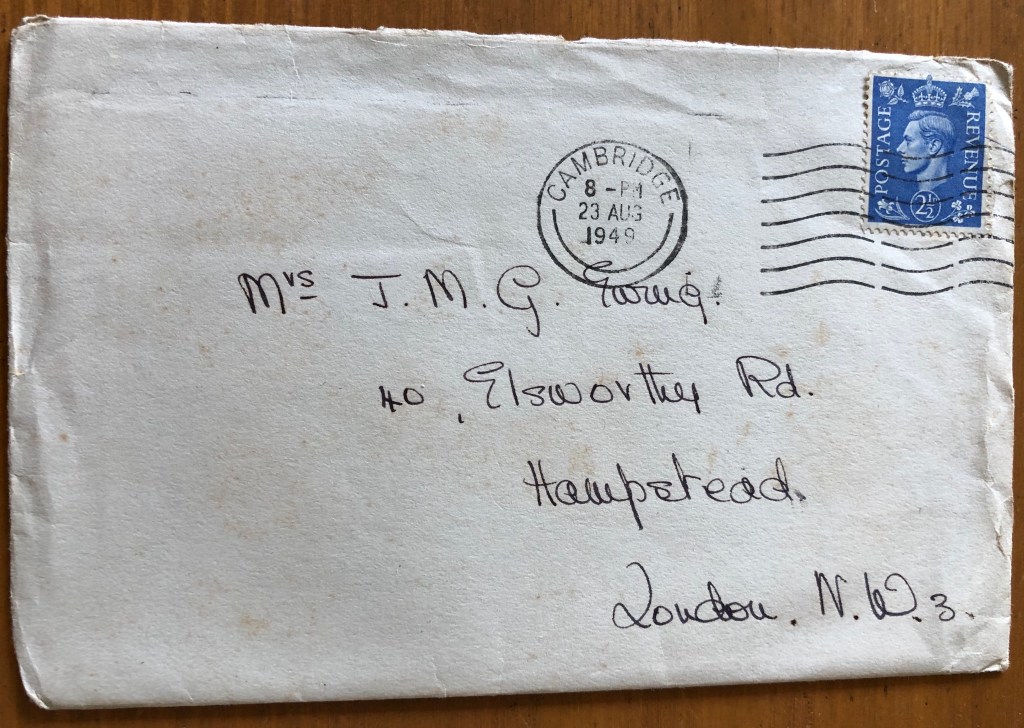 POSTAGE REVENUE
2½
CAMBRIDGE
8 - PM
23 AUG
1949
Mrs J. M. G.
40, Elsworthy Rd.
Hampstead.
London. N.W.3.